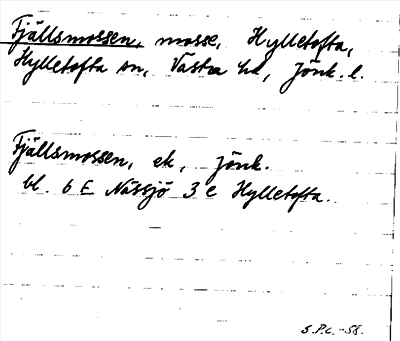 Fjällsmossen, mosse, Hylletofta,
Hylletofta sn, Västra hd, Jönk. l.
Fjällsmossen, ek, Jönk.
bl. 6 E Nässjö 3 e Hylletofta.
S.P.L. -58.